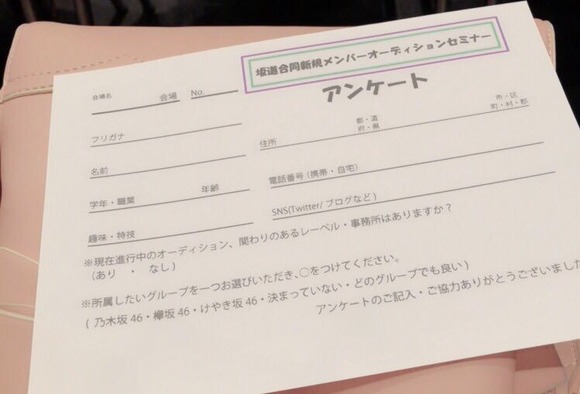 坂道合同新規メンバーオーディションセミナー
アンケート
会場名 会場 No.
フリガナ
名前
住所 都・道 府・県 市・区 町・村・郡
学年・職業 年齢
電話番号(携帯・自宅)
趣味・特技
SNS(Twitter/ブログなど)
※現在進行中のオーディション、関わりのあるレーベル・事務所はありますか?
(あり ・ なし)
※所属したいグループを一つお選びいただき、○をつけてください。
(乃木坂46・欅坂46・けやき坂46・決まっていない・どのグループでも良い)
アンケートのご記入・ご協力ありがとうございました